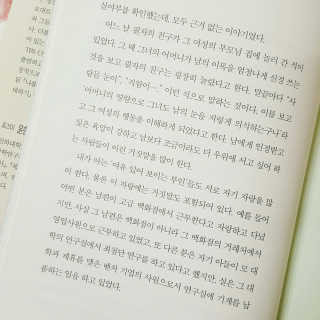 실여부를 확인했는데, 모두 근거 없는 이야기였다.
어느 날 필자의 친구가 그 여성의 부모님 집에 놀러 간 적이
있었다. 그 때 그녀의 어머니가 남의 이목을 엄청나게 신경 쓰는
것을 보고 필자의 친구는 굉장히 놀랐다고 한다. 말끝마다 "사
람들 눈이", "치일이…" 이런 식으로 말하는 것이다. 이를 보고
'어머니의 영향으로 그녀도 남의 눈을 저렇게 의식하는구나'라
고 그 여성의 행동을 이해하게 되었다고 한다. 남에게 인정받고
싶은 욕망이 강하고 남보다 조금이라도 더 우위에 서고 싶어 하
는 사람들이 이런 거짓말을 많이 한다.
내가 아는 '여유 있어 보이는 부인'들도 서로 자기 자랑을 많
이 한다. 물론 이 자랑에는 거짓말도 포함되어 있다. 예를 들어
어떤 분은 남편이 고급 백화점에서 근무한다고 자랑하고 다녔
지만, 사실 그 남편은 백화점이 아니라 그 백화점의 거래처에서
영업사원으로 근무하고 있었고, 또 다른 분은 자기 아들이 모 대
학의 연구실에서 최첨단 연구를 하고 있다고 했지만, 실은 그 대
학과 제휴를 맺은 벤처 기업의 사원으로서 연구실에 기계를 납
품하는 일을 하고 있었다.